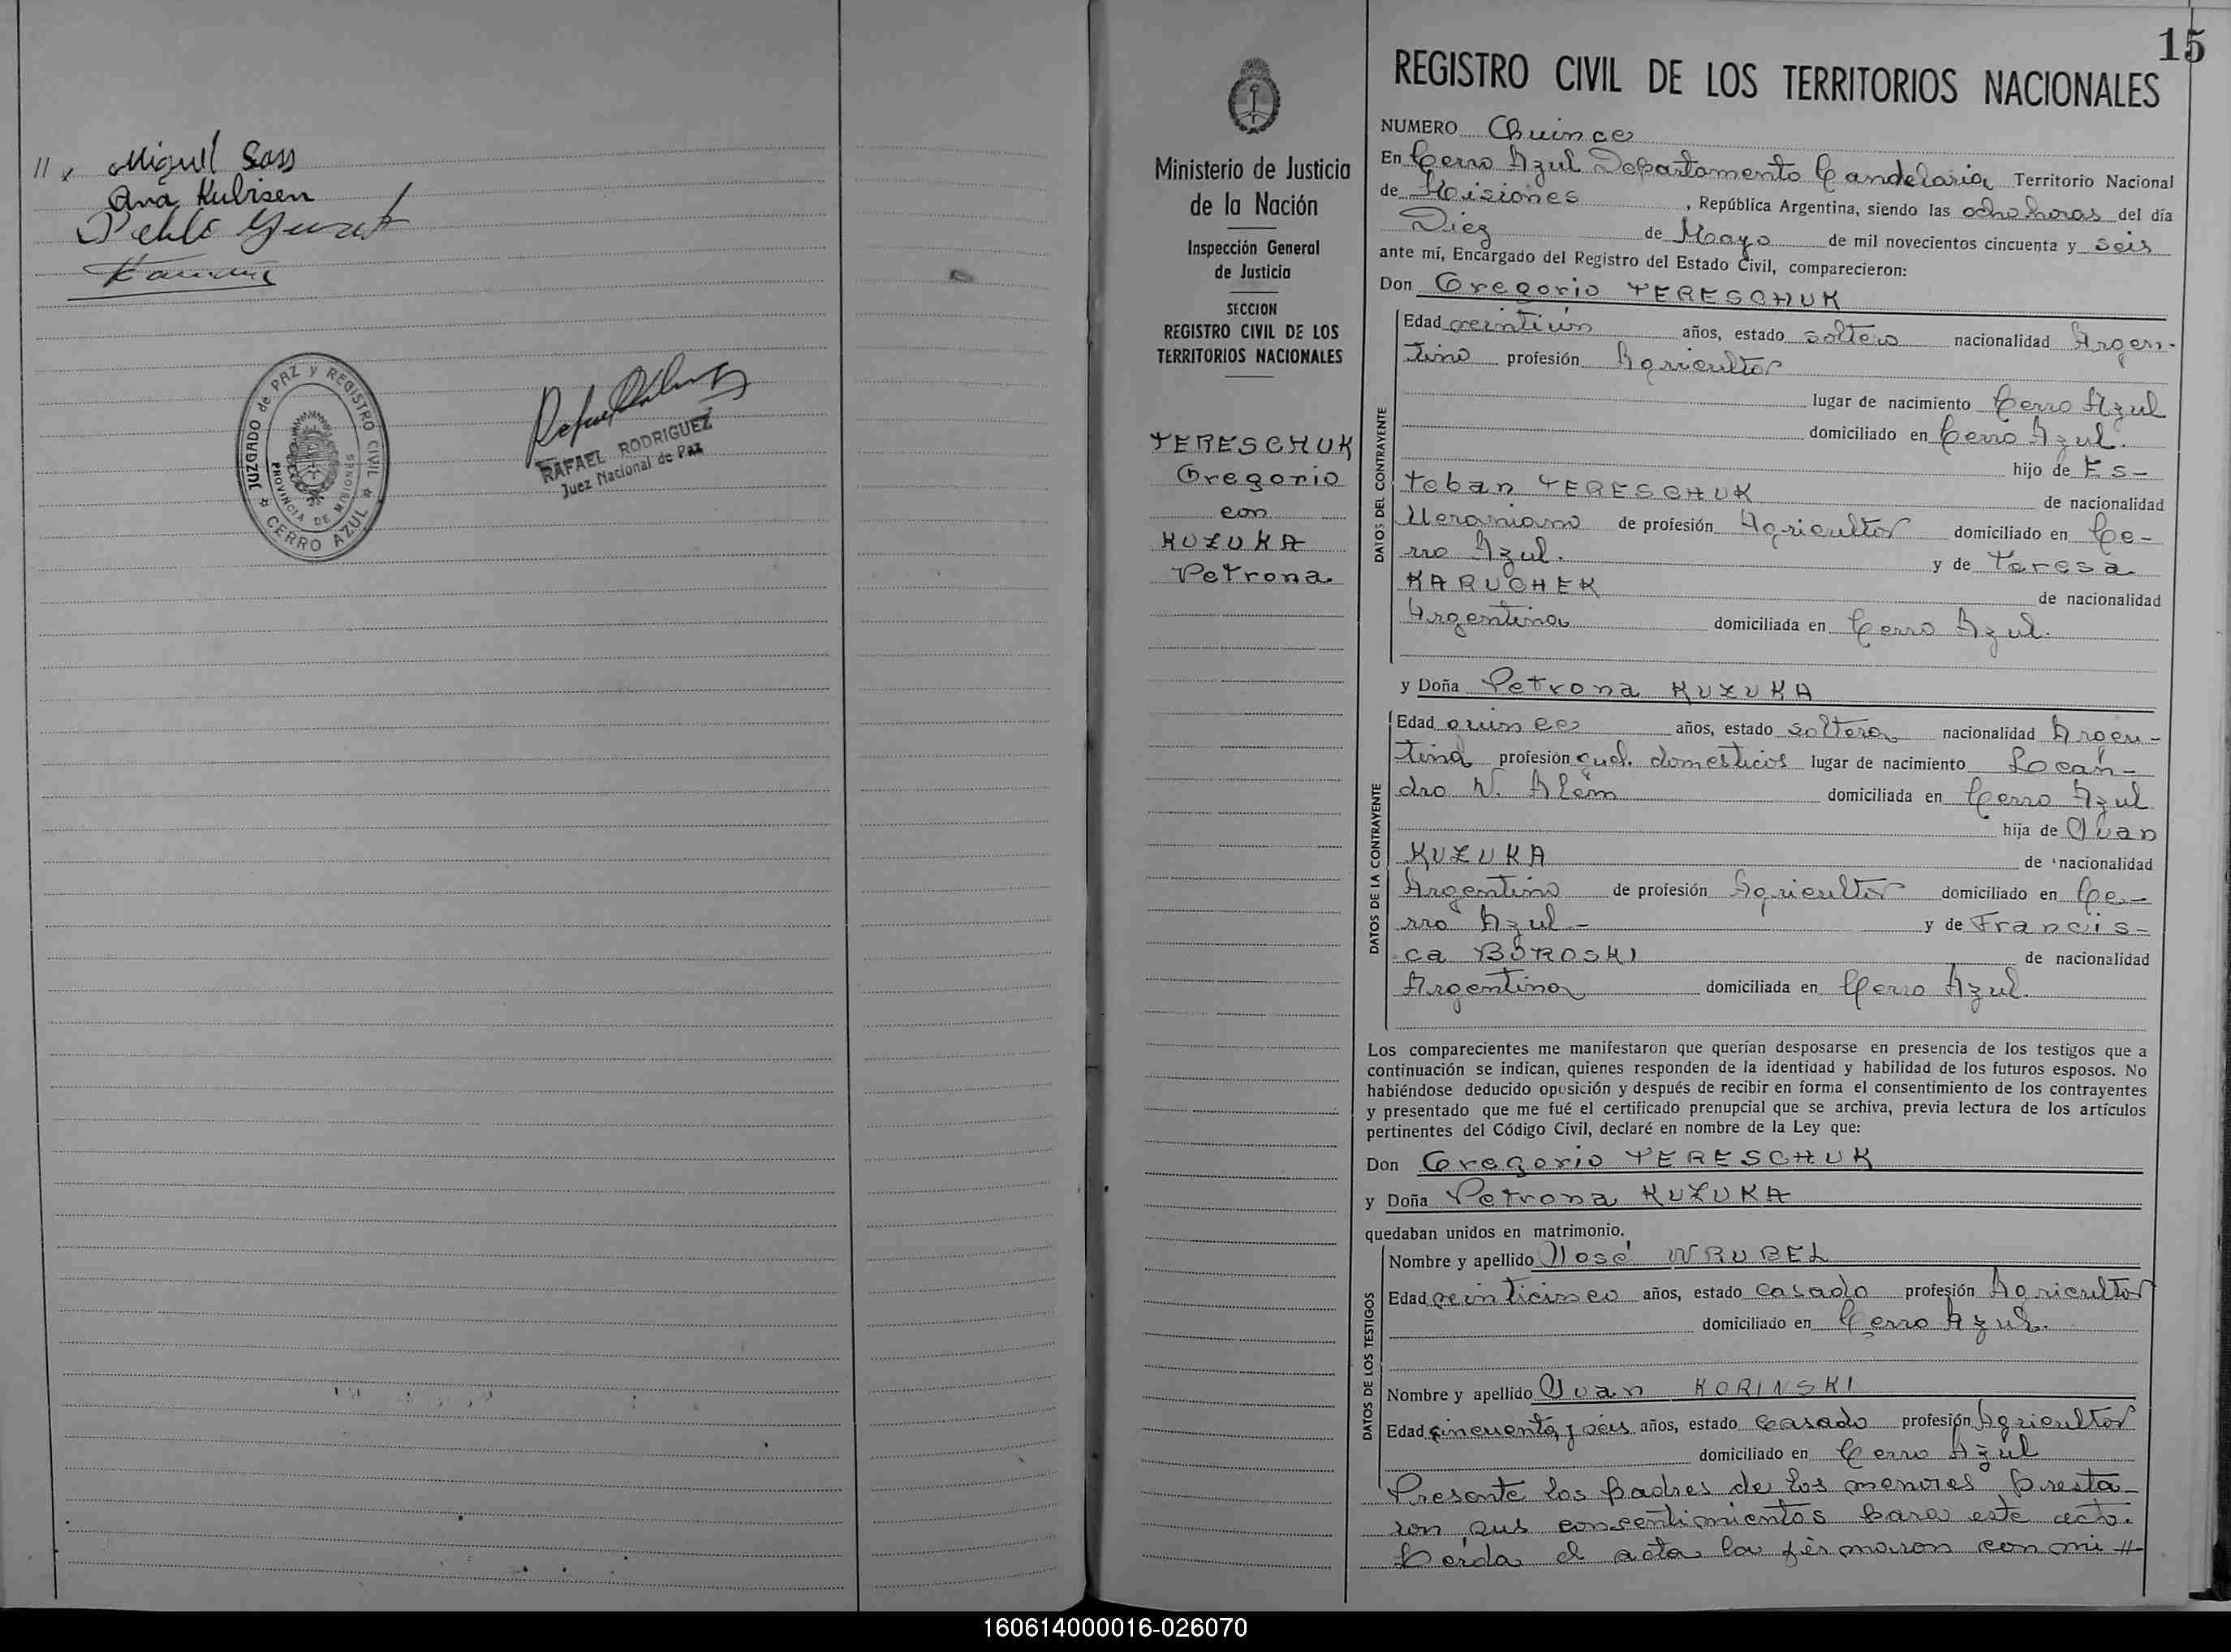 // x Miguel Sass
Ana Kubisen
JUZGADO de PAZ y REGISTRO CIVIL
PROVINCIA DE MISIONES
CERRO AZUL
RAFAEL RODRIGUEZ
Juez Nacional de Paz
15
Ministerio de Justicia
de la Nación
Inspección General
de Justicia
SECCION
REGISTRO CIVIL DE LOS
TERRITORIOS NACIONALES
TERESCHUK
Gregorio
con
KUZUKA
Petrona
REGISTRO CIVIL DE LOS TERRITORIOS NACIONALES
NUMERO Quince
En Cerro Azul Departamento Candelaria Territorio Nacional
de Misiones, República Argentina, siendo las ocho horas del día
Diez de Mayo de mil novecientos cincuenta y seis
ante mí, Encargado del Registro del Estado Civil, comparecieron:
Don Gregorio TERESCHUK
DATOS DEL CONTRAYENTE
Edad veintiún años, estado soltero nacionalidad Argen-
tino profesión Agricultor
lugar de nacimiento Cerro Azul
domiciliado en Cerro Azul.
hijo de Es-
teban TERESCHUK de nacionalidad
Ucraniano de profesión Agricultor domiciliado en Ce-
rro Azul. y de Teresa
KARUCHEK de nacionalidad
Argentina domiciliada en Cerro Azul.
y Doña Petrona KUZUKA
DATOS DE LA CONTRAYENTE
Edad quince años, estado soltera nacionalidad Argen-
tina profesión qued. domesticos lugar de nacimiento Lean-
dro N. Alem domiciliada en Cerro Azul
hija de Juan
KUZUKA de nacionalidad
Argentino de profesión Agricultor domiciliado en Ce-
rro Azul.- y de Francis-
ca BOROSKI de nacionalidad
Argentina domiciliada en Cerro Azul.
Los comparecientes me manifestaron que querían desposarse en presencia de los testigos que a
continuación se indican, quienes responden de la identidad y habilidad de los futuros esposos. No
habiéndose deducido oposición y después de recibir en forma el consentimiento de los contrayentes
y presentado que me fué el certificado prenupcial que se archiva, previa lectura de los artículos
pertinentes del Código Civil, declaré en nombre de la Ley que:
Don Gregorio TERESCHUK
y Doña Petrona KUZUKA
quedaban unidos en matrimonio.
DATOS DE LOS TESTIGOS
Nombre y apellido José WRUBEL
Edad veinticinco años, estado casado profesión Agricultor
domiciliado en Cerro Azul.
Nombre y apellido Juan KORINSKI
Edad cincuenta y seis años, estado casado profesión Agricultor
domiciliado en Cerro Azul
Presente los padres de los menores presta-
ron sus consentimientos para este acto.
Leída el acta la firmaron con mi //
160614000016-026070